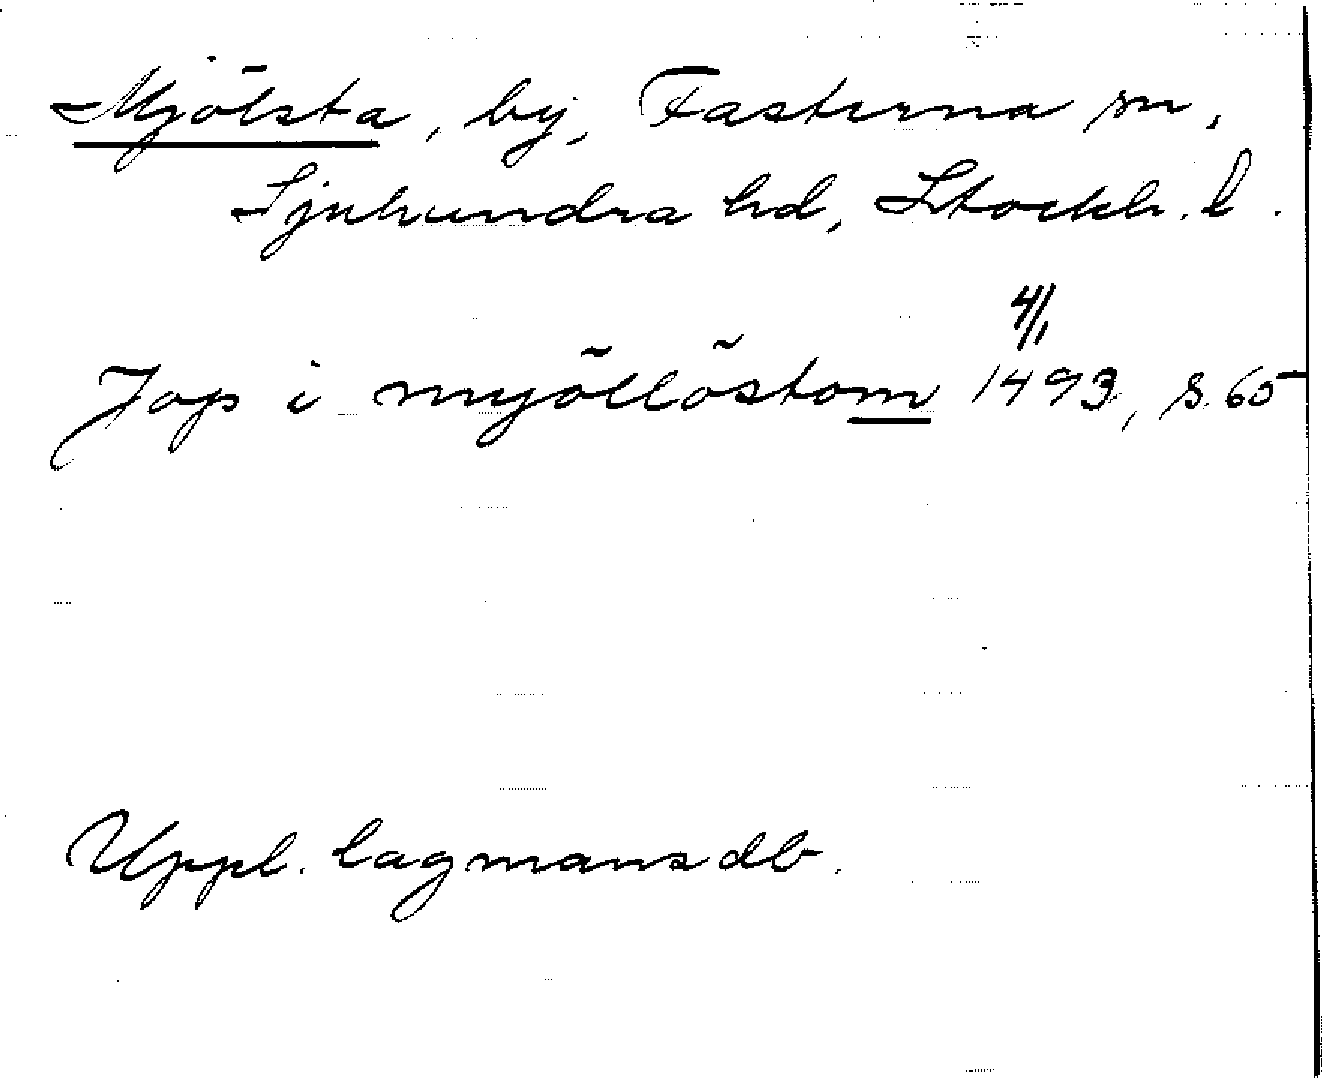 Mjölsta, by, Fasterna sn,
Sjuhundra hd, Stockh. l.
4/1
Jop i myöllöstom 1493, s. 65
Uppl. lagmansdb.